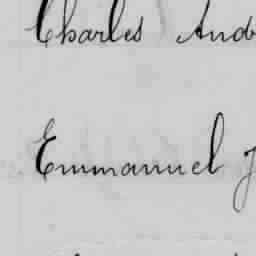 Charles And
Emmanuel J